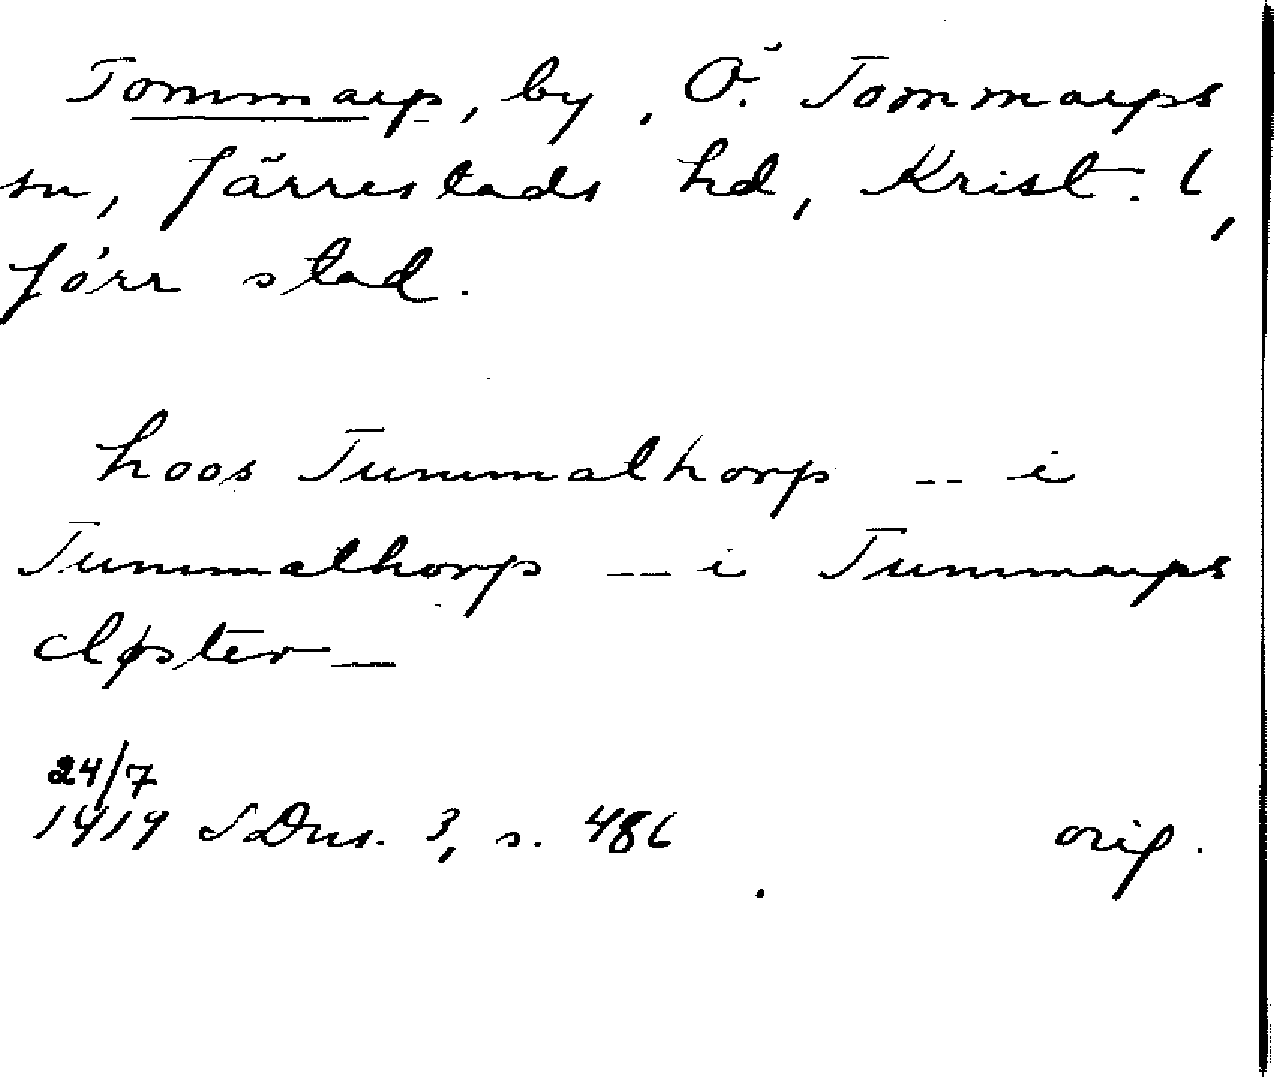 Tommarp, by, Ö. Tommarps
sn, Järrestads hd, Krist. l,
förr stad.
hoos Tummalthorp -- i
Tummalthorp -- i Tummarps
cløster --
24/7
1419 SDns. 3, s. 486 orig.